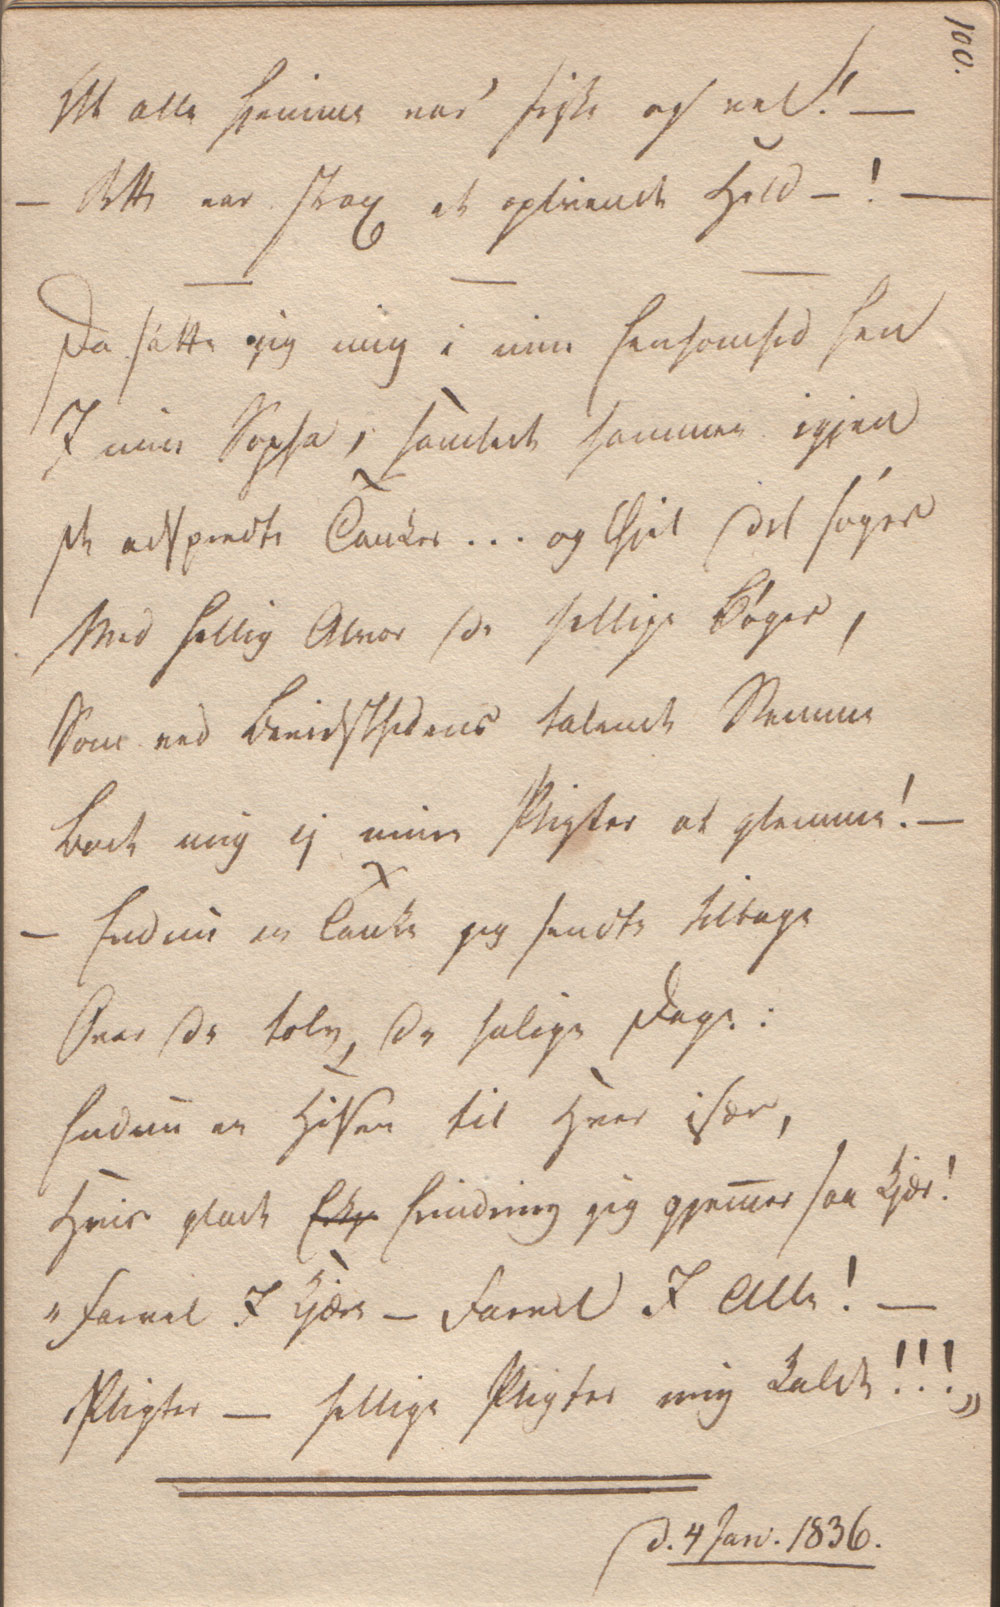 100.
At alle hjemme var' friske og vel! —
— Dette var strax et oplivende Held — ! —
Da satte jeg mig i min Eensomhed hen
I min Sopha, samlede sammen igjen
De adspredte Tanker ... og hiil det søger
Med hellig Alvor de hellige Bøger,
Som ved Bevidsthedens talende Stemme
Bød mig ej mine Pligter at glemme! —
— Endnu en Tanke jeg sendte tilbage
Over de tolv, de salige Dage:
Endnu en Hilsen til Hver især,
Hvis glade Erindring jeg gjemmer saa kjær!
"Farvel I Kjære — Farvel I Alle! —
Pligter — hellige Pligter mig kalde!!!"
d. 4 Jan. 1836.